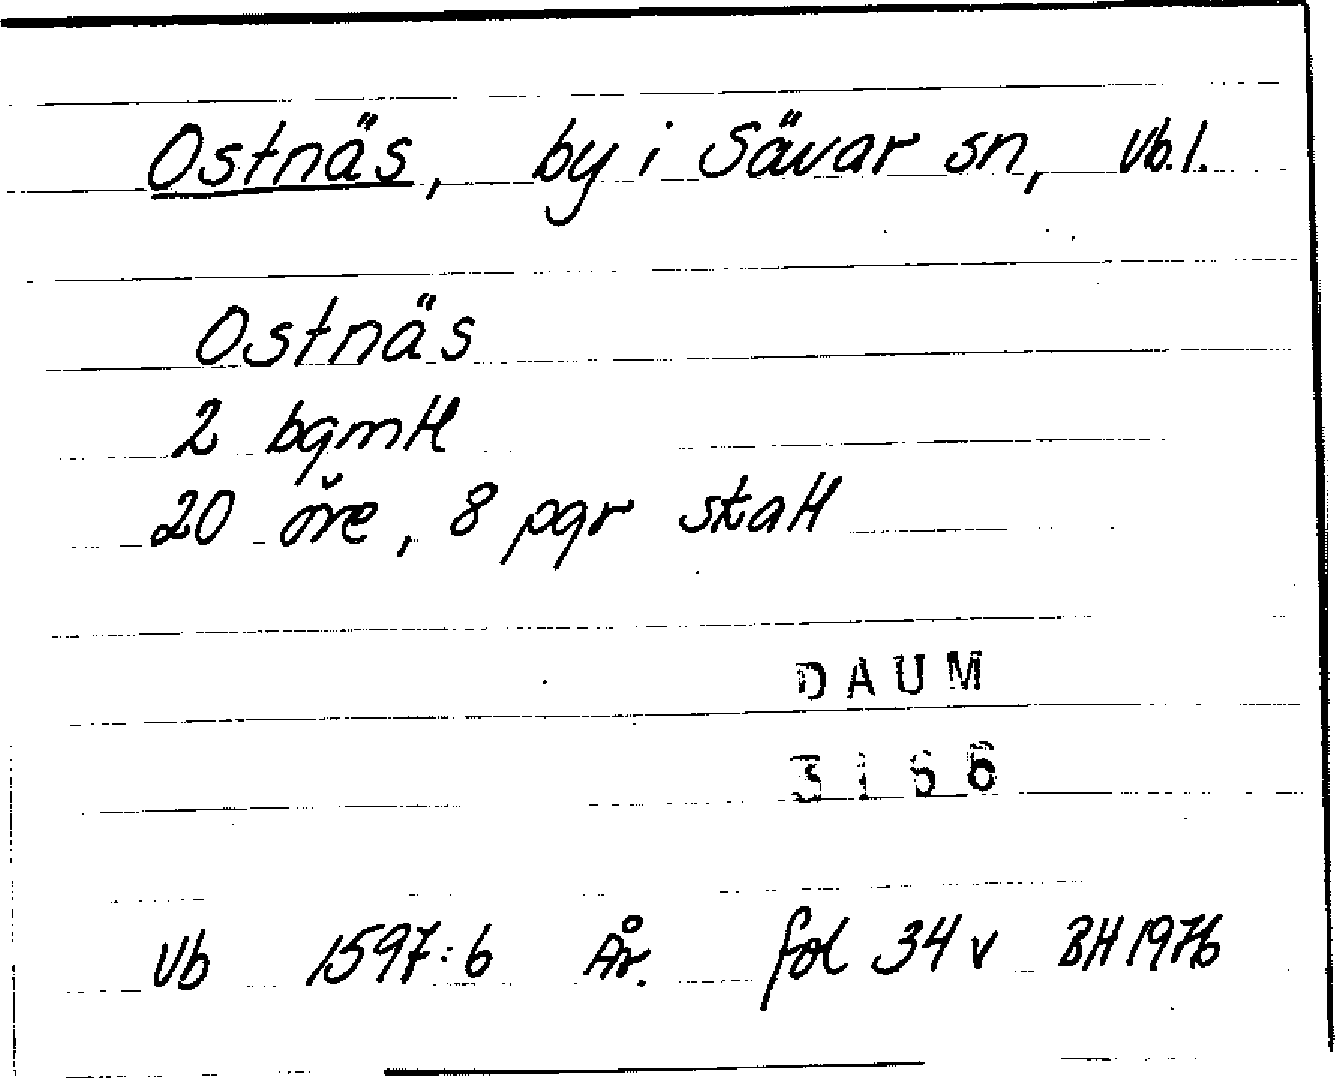 Ostnäs, by i Sävar sn, Vb.l.
Ostnäs
2 bgmtl
20 öre, 8 pgr skatt
DAUM
3166
Vb 1597:6 År. fol 34 v BH 1976